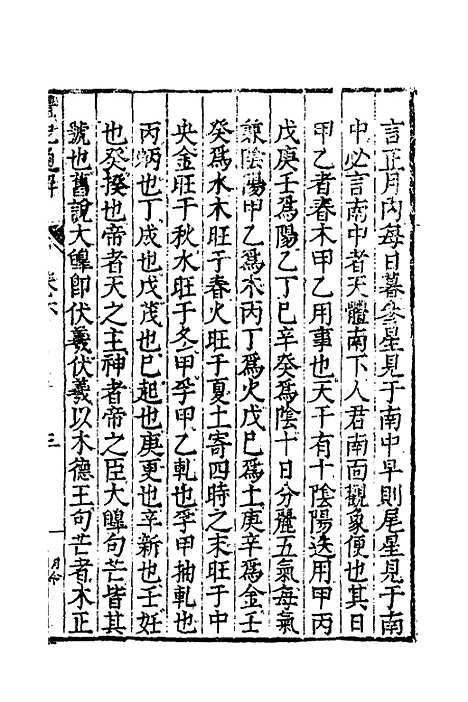 言正月内每日暮參星見于南中早則尾星見于南
中必言南中者天體南下人君南面觀象便也其日
甲乙者春木甲乙用事也天干有十陰陽迭用甲丙
戊庚壬爲陽乙丁巳辛癸爲陰十日分麗五氣每氣
兼陰陽甲乙爲木丙丁爲火戊巳爲土庚辛爲金壬
癸爲水木旺于春火旺于夏土寄四時之末旺于中
央金旺于秋水旺于冬甲孚甲乙軋也孚甲抽軋也
丙炳也丁成也戊茂也巳起也庚更也辛新也壬妊
也癸揆也帝者天之主神者帝之臣大皥句芒皆其
號也舊說大皥即伏羲伏羲以木德王句芒者木正
禮記通解
卷六
三
月令